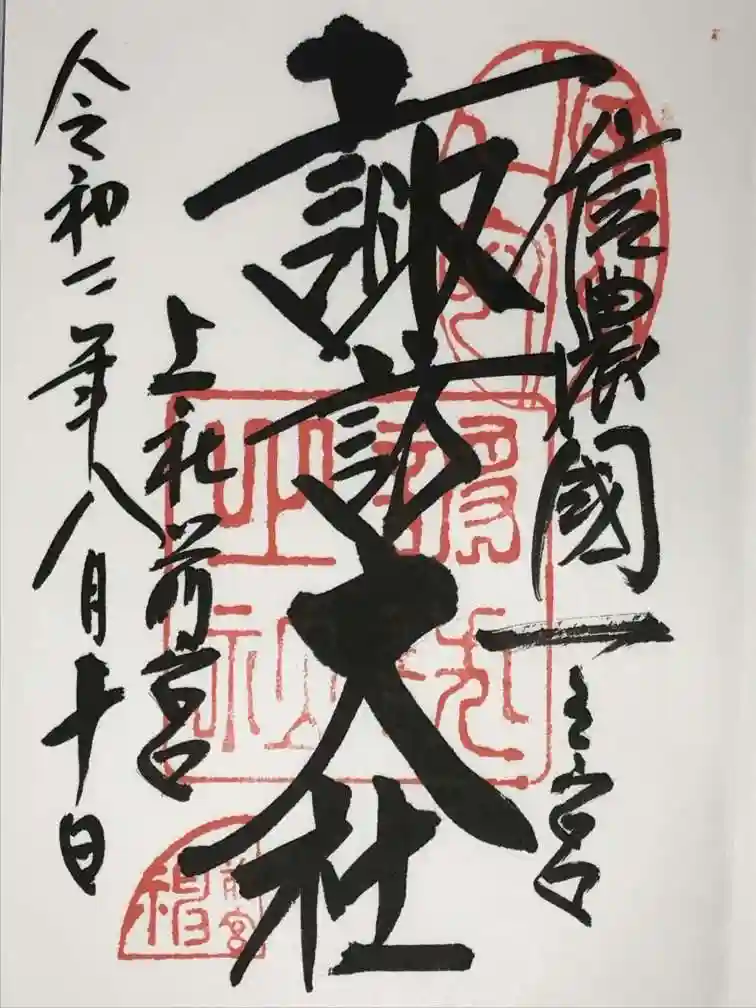 信濃國一之宮
諏訪大社
上社前宮
令和二年八月十日
前宮